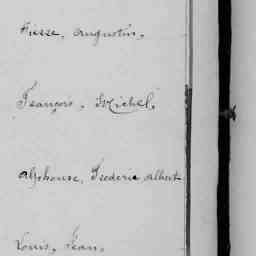 Pierre, Augustin,
François, Michel,
Alphonse, Frederic Albert
Louis, Jean,